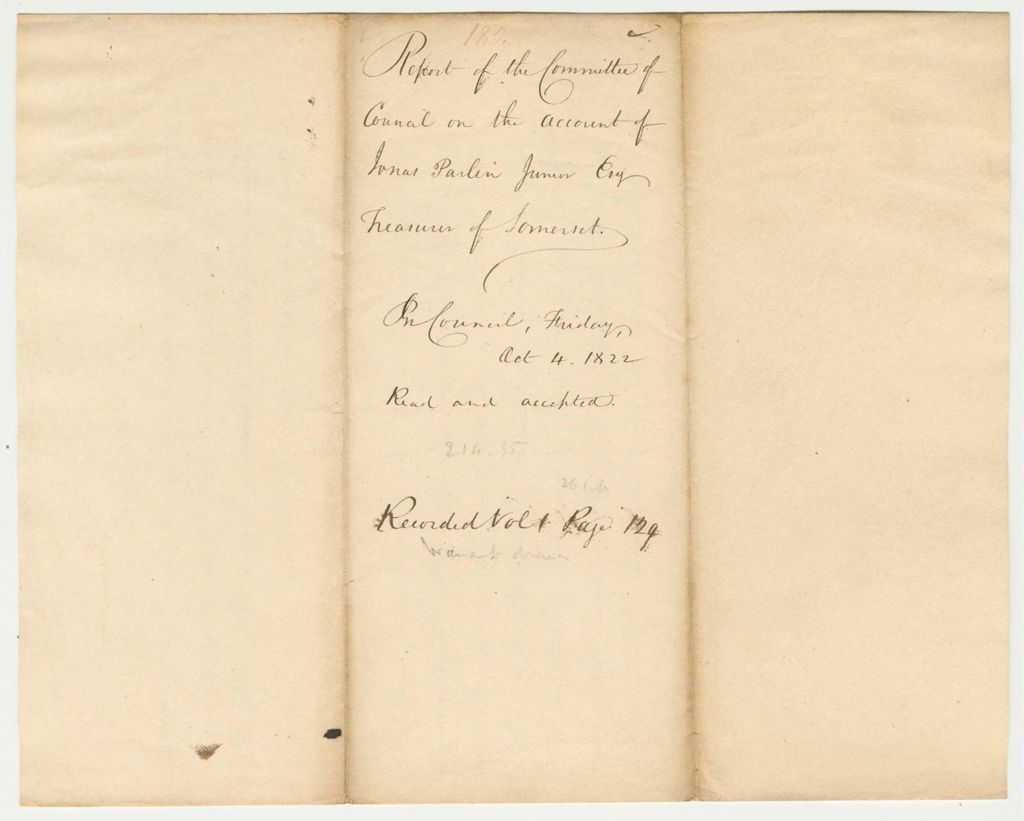 Report of the Committee of
Council on the account of
Jonas Parlin Junior Esq
Treasurer of Somerset.
In Council, Friday,
Oct 4. 1822
Read and accepted.
214.55
Recorded Vol 1 Page 129
Warrant drawn